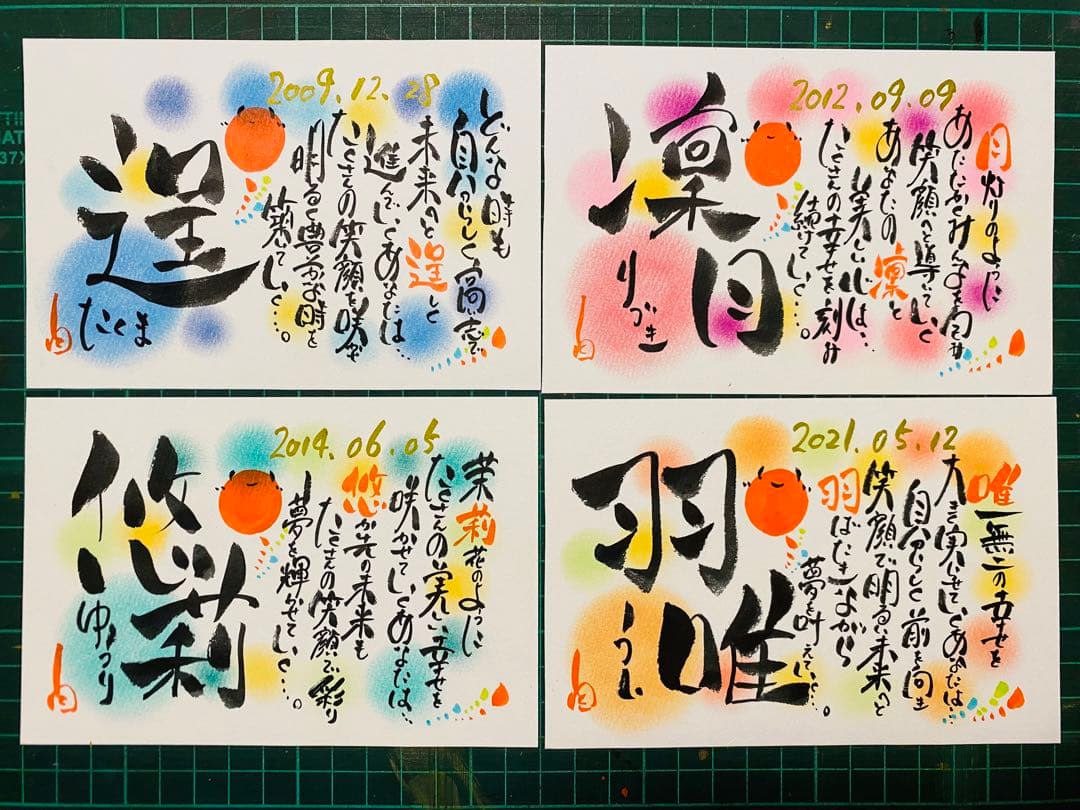 2009.12.28
どんな時も
自分らしく高い志で
未来へと逞しく
進んでいくあなたは…
たくさんの笑顔を咲かせ
明るく豊かな時を
築いていく…。
逞
たくま
2012.09.09
月灯りのように
あたたかくみんなを包み
笑顔へと導いていく
あなたの凛と
美しい心は…
たくさんの幸せを刻み
続けていく…。
凛月
りづき
2014.06.05
茉莉花のように
たくさんの美しい幸せを
咲かせていくあなたは…
悠か先の未来も
たくさんの笑顔で彩り
夢を輝かせていく…。
悠莉
ゆうり
2021.05.12
唯一無二の幸せを
大きく実らせていくあなたは…
自分らしく前を向き
笑顔で明るい未来へと
羽ばたきながら
夢を叶えていく…。
羽唯
うい